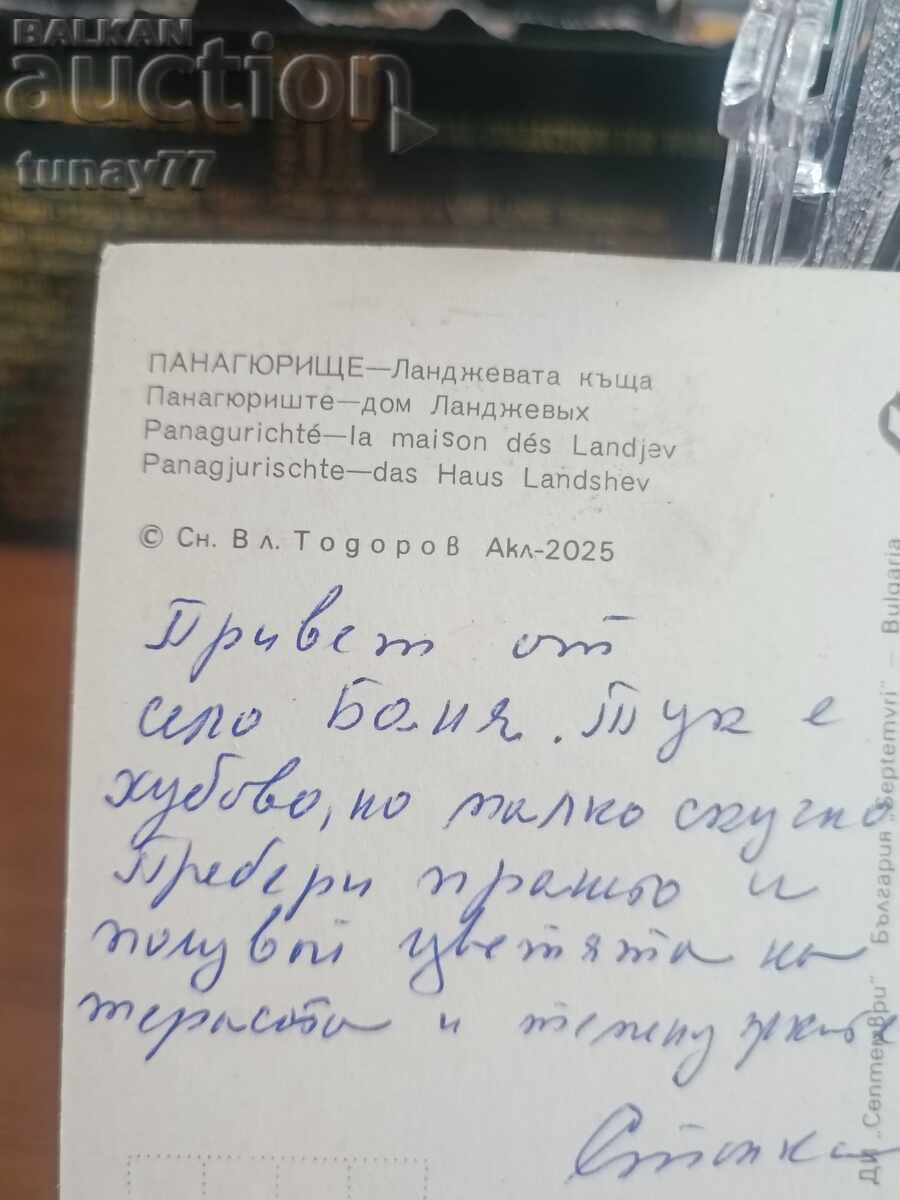 BALKAN
auction
tunay77
ПАНАГЮРИЩЕ—Ланджевата къща
Панагюриште—дом Ланджевых
Panagurichté—la maison dés Landjev
Panagjurischte—das Haus Landshev
© Сн. Вл. Тодоров Акл-2025
Привет от
село Баня. Тук е
хубаво, но малко скучно.
Прибери прането и
поливай цветята на
терасата и
Стонка
ДИ „Септември" България „Septemvri" – Bulgaria